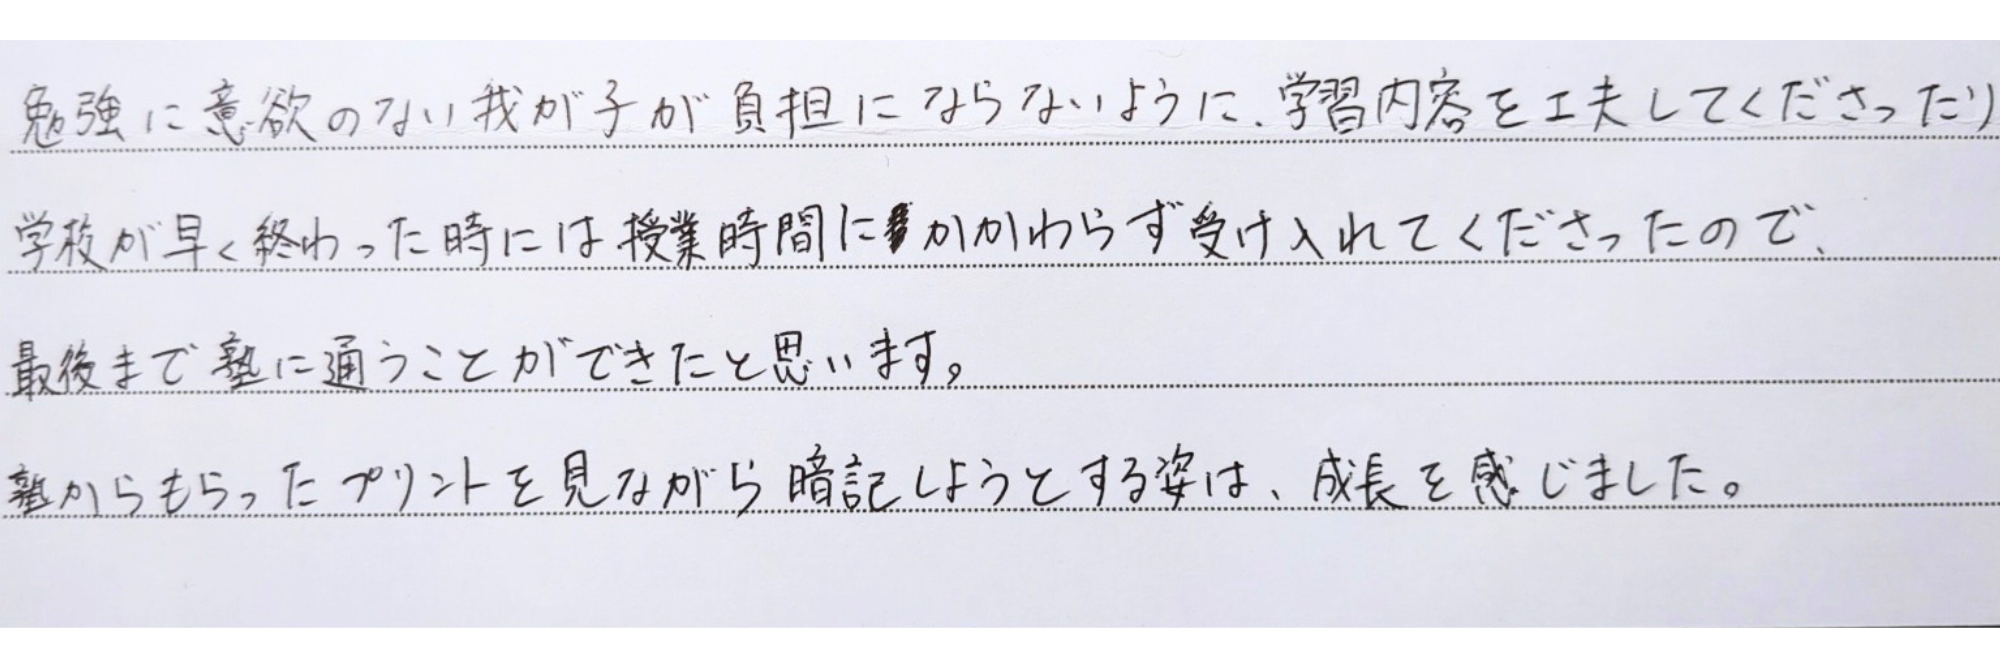 勉強に意欲のない我が子が負担にならないように、学習内容を工夫してくださったり
学校が早く終わった時には授業時間にかかわらず受け入れてくださったので、
最後まで塾に通うことができたと思います。
塾からもらったプリントを見ながら暗記しようとする姿は、成長を感じました。